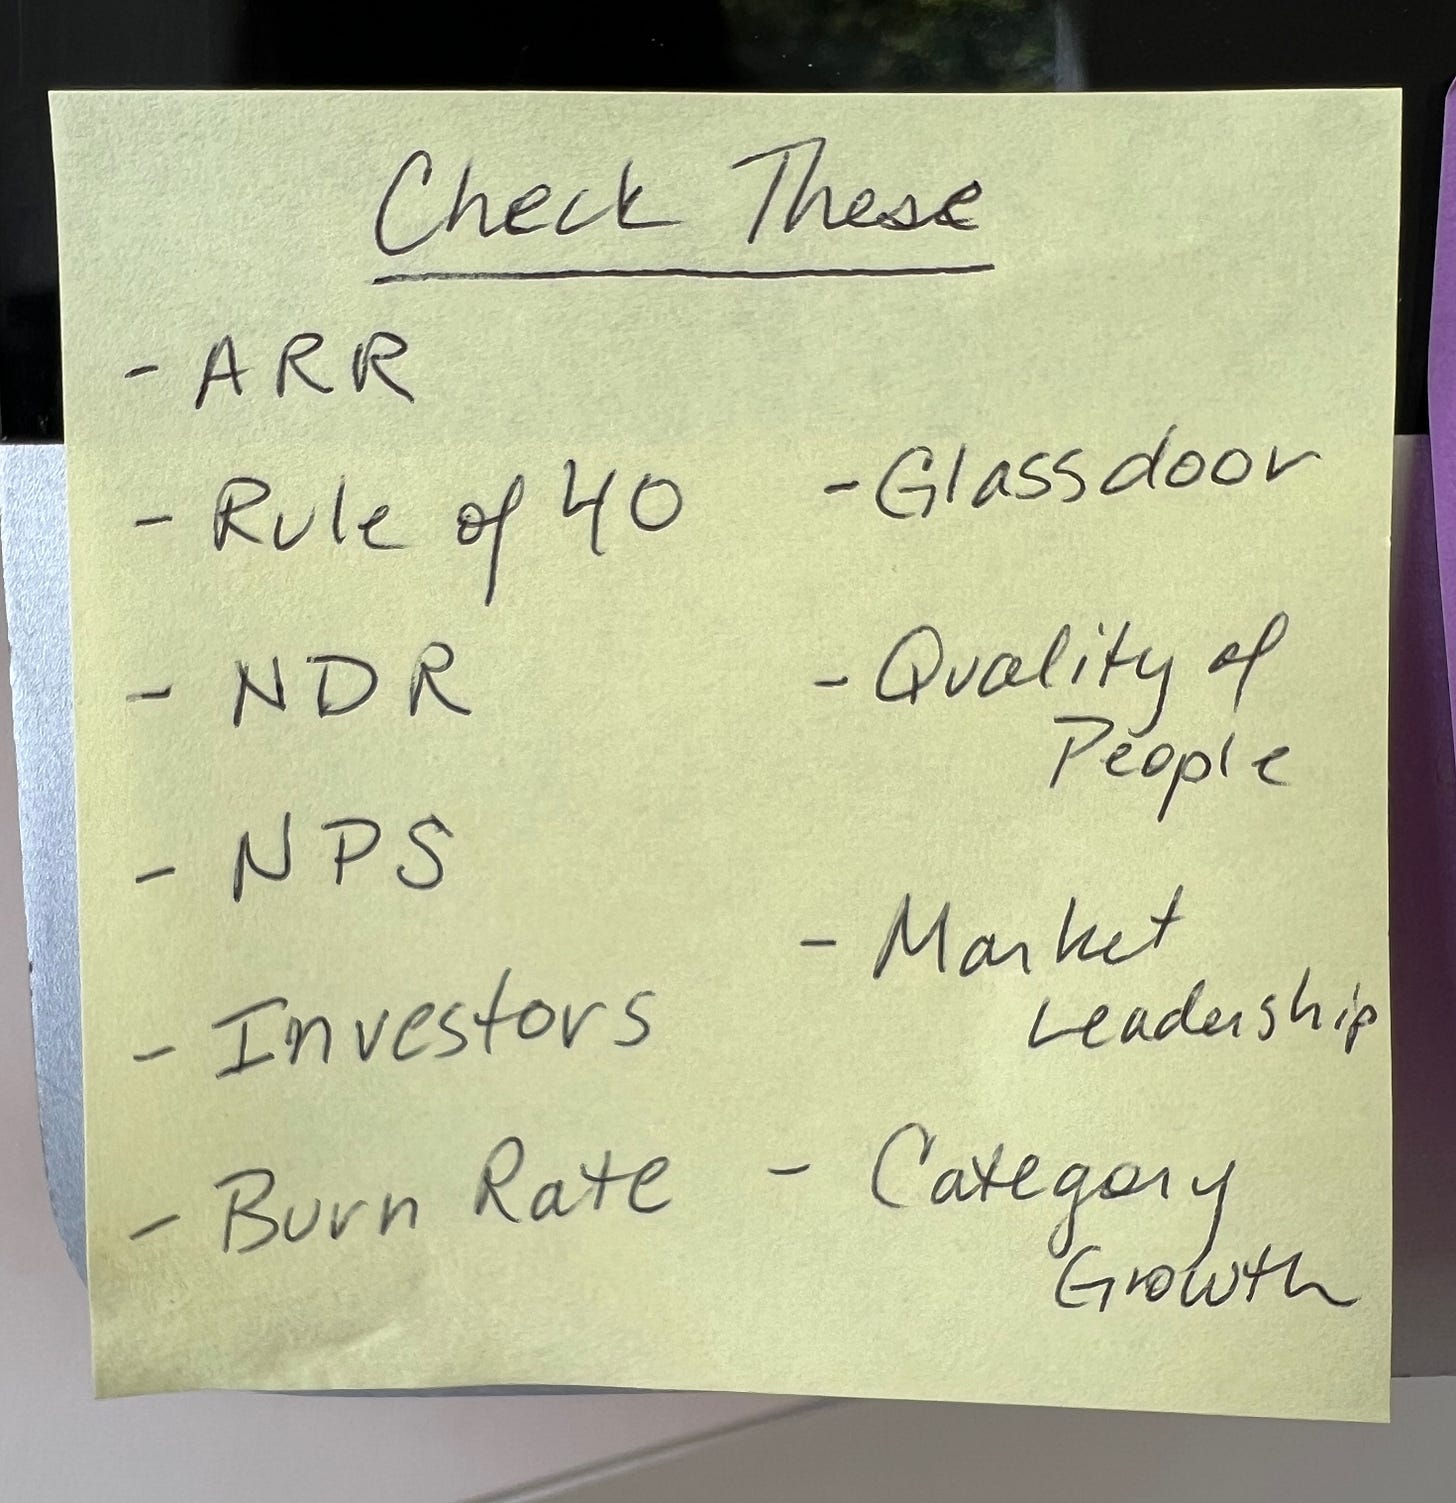 Check These
- ARR
- Rule of 40
- NDR
- NPS
- Investors
- Burn Rate
- Glassdoor
- Quality of
People
- Market
Leadership
- Category
Growth